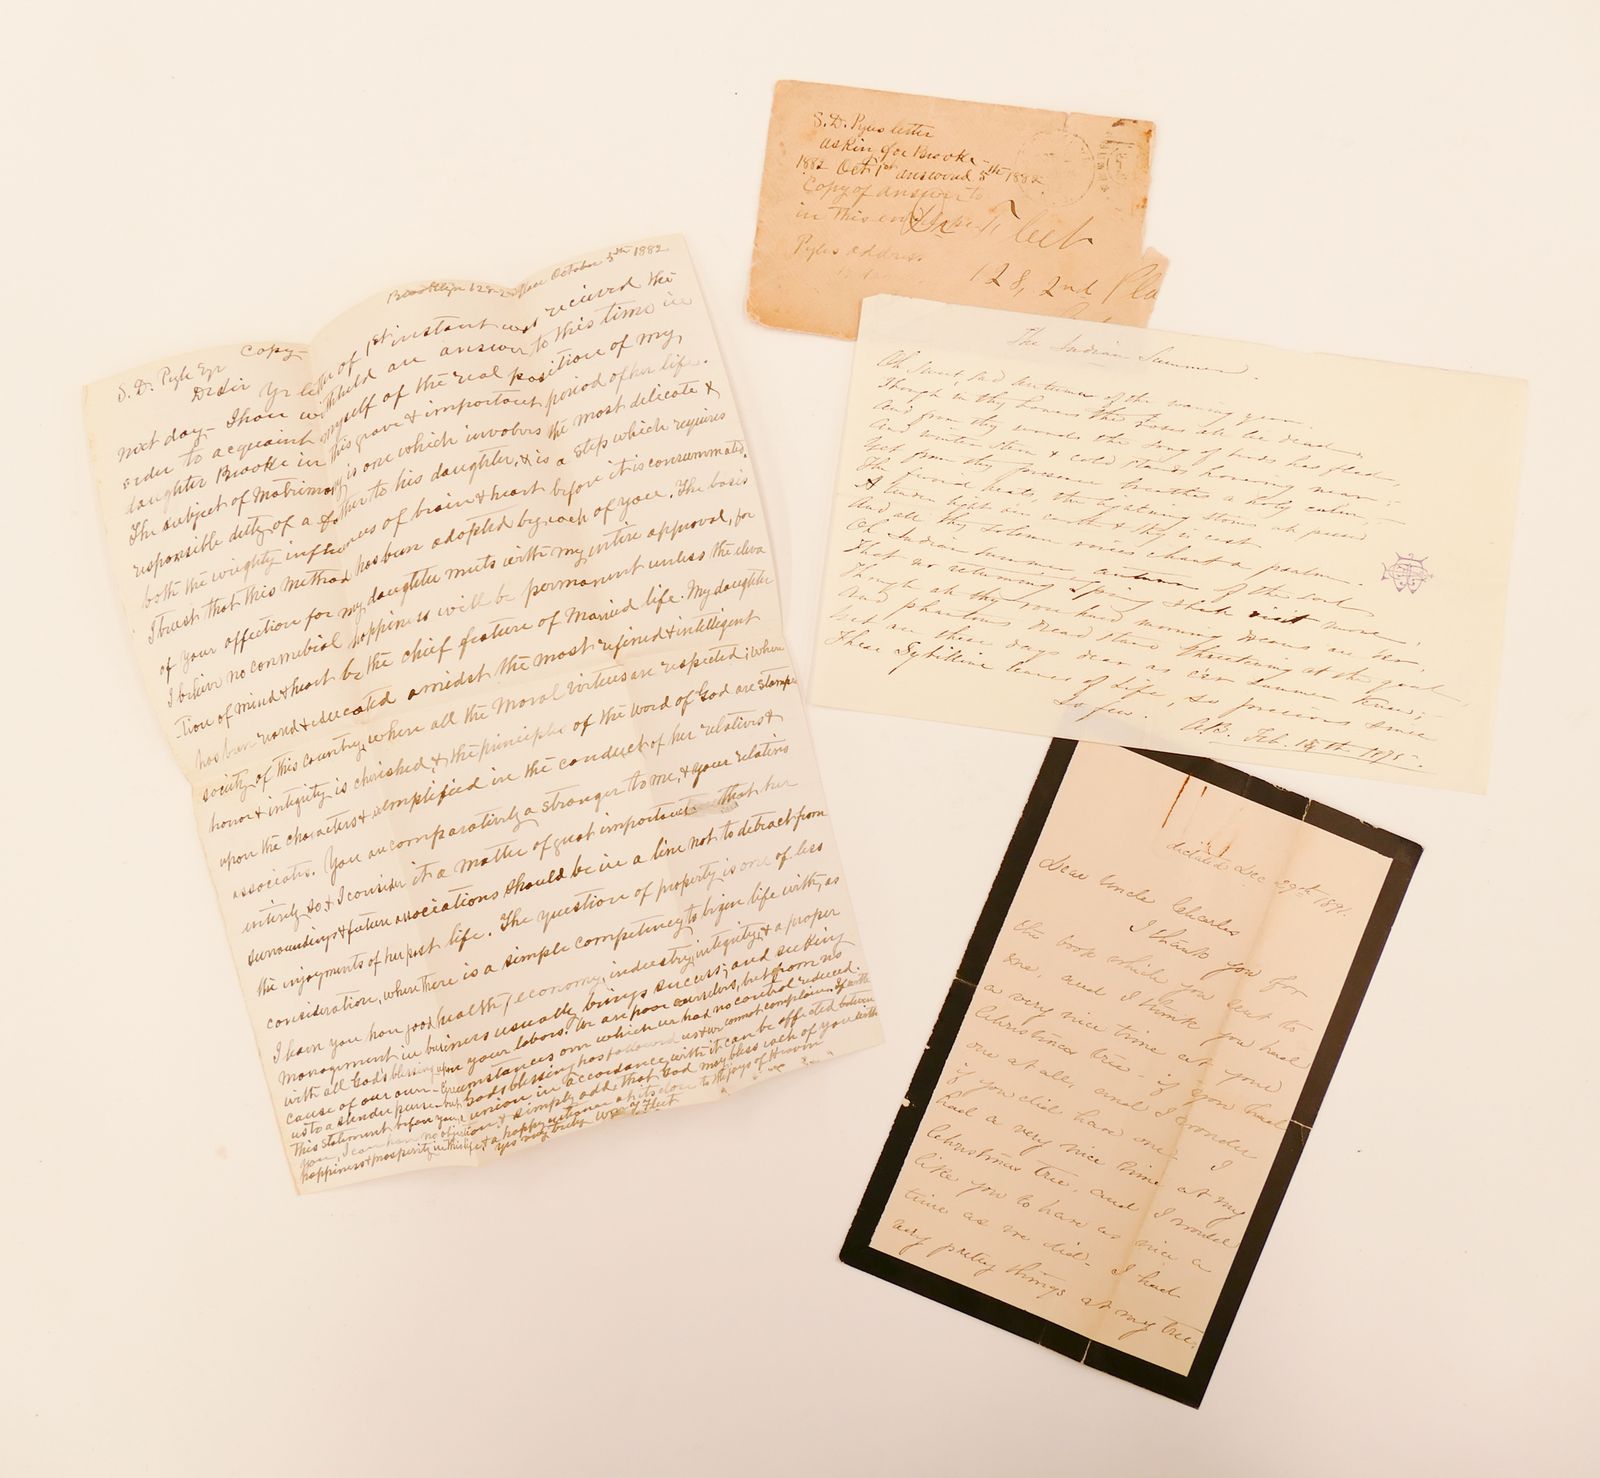 S. D. Pyle Eqr Copy-
Brooklyn 128-2 place October 5th 1882
Dr Sir Yr letter of 1st instant was recieved the
next day- I have withheld an answer to this time in
order to acquaint myself of the real position of my
daughter Brooke in this grave & important period of her life.
The subject of Matrimony is one which involves the most delicate &
responsible duty of a father to his daughter, & is a step which requires
both the weighty influences of brain & heart before it is consummated.
I trust that this method has been adopted by each of you. The basis
of your affection for my daughter meets with my entire approval, for
I believe no connubial happiness will be permanent unless the eleva
-tion of mind & heart be the chief feature of Married life. My daughter
has been reared & educated amidst the most refined & intelligent
society of this country, where all the Moral virtues are respected; where
honor & integrity is cherished, & the principles of the word of God are stamped
upon the characters & exemplified in the conduct of her relatives &
associates. You are comparatively a stranger to me, & your relations
entirely so & I consider it a matter of great importance that her
surroundings & future associations should be in a line not to detract from
the enjoyments of her past life. The question of property is one of less
consideration, where there is a simple competency to begin life with, as
I learn you have good health, economy, industry, integrity & a proper
management in business usually brings success; and seeking
with all God's blessing upon your labors. We are poor ourselves, but from no
cause of our own- circumstances over which we had no control reduced
us to a slender purse- but God's blessing has followed us & we cannot complain. If with
this statement before you a union in accordance with it can be affected between
you, I can have no objection & simply add, that God may bless each of you with
happiness & prosperity in this life & a happy entrance at its close to the joys of Heaven
Yrs very truly Wm Fleet
S. D. Pyles letter
asking for Brooke-
1882 Oct 1st answered 5th 1882
Copy of answer to
in this envelope
Fleet
Pyles address
128, 2nd Pla
The Indian Summer.
Oh Sweet, sad autumn of the waning year.
Though in thy bowers the roses all lie dead,
And from thy woods the song of birds has fled,
And winter stern & cold stands hovering near:
Yet from thy presence breathes a holy calm,
The fervid heats, the lightning storms are passed
A tender light oer earth & sky is cast
And all thy solemn voices chant a psalm.
Oh Indian Summer autumn of the soul
That no returning Spring shall visit more,
Though at thy
And phantoms dread stand threatening at the goal,
Yet are these days dear as our Summer knew;
These Sybilline leaves of Life, so precious since
So few. A.B. Feb. 15th 1875-
dictated Dec 29th 1891.
Dear Uncle Charles
I thank you for
the book which you sent to
me, and I think you had
a very nice time at your
Christmas tree- if you had
one at all, and I wonder
if you did have one. I
had a very nice time at my
Christmas tree, and I would
like you to have as nice a
time as we did- I had
very pretty things at my tree.